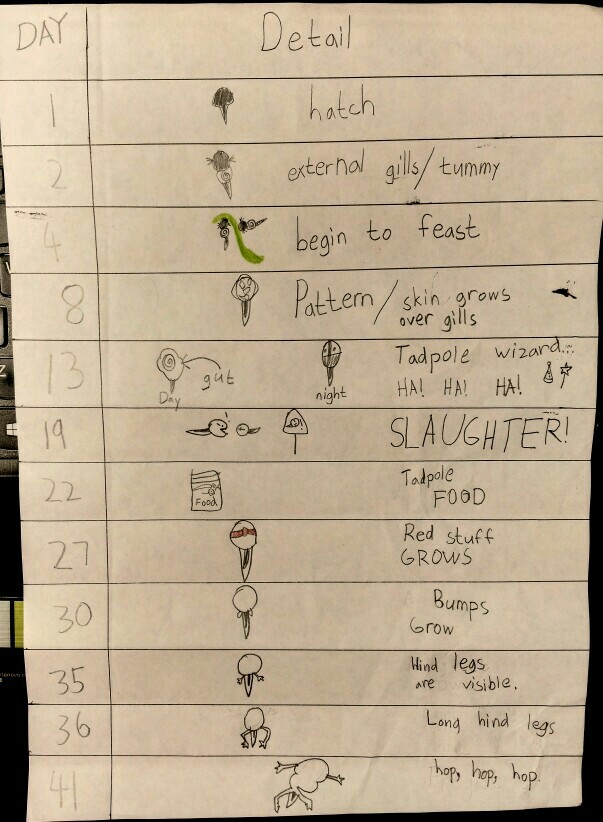 DAY Detail
1 hatch
2 external gills/tummy
4 begin to feast
8 Pattern/skin grows
over gills
13 gut Tadpole wizard...
Day night HA! HA! HA!
19 SLAUGHTER!
22 Tadpole
Food FOOD
27 Red stuff
GROWS
30 Bumps
Grow
35 Hind legs
are visible.
36 Long hind legs
41 hop, hop, hop.